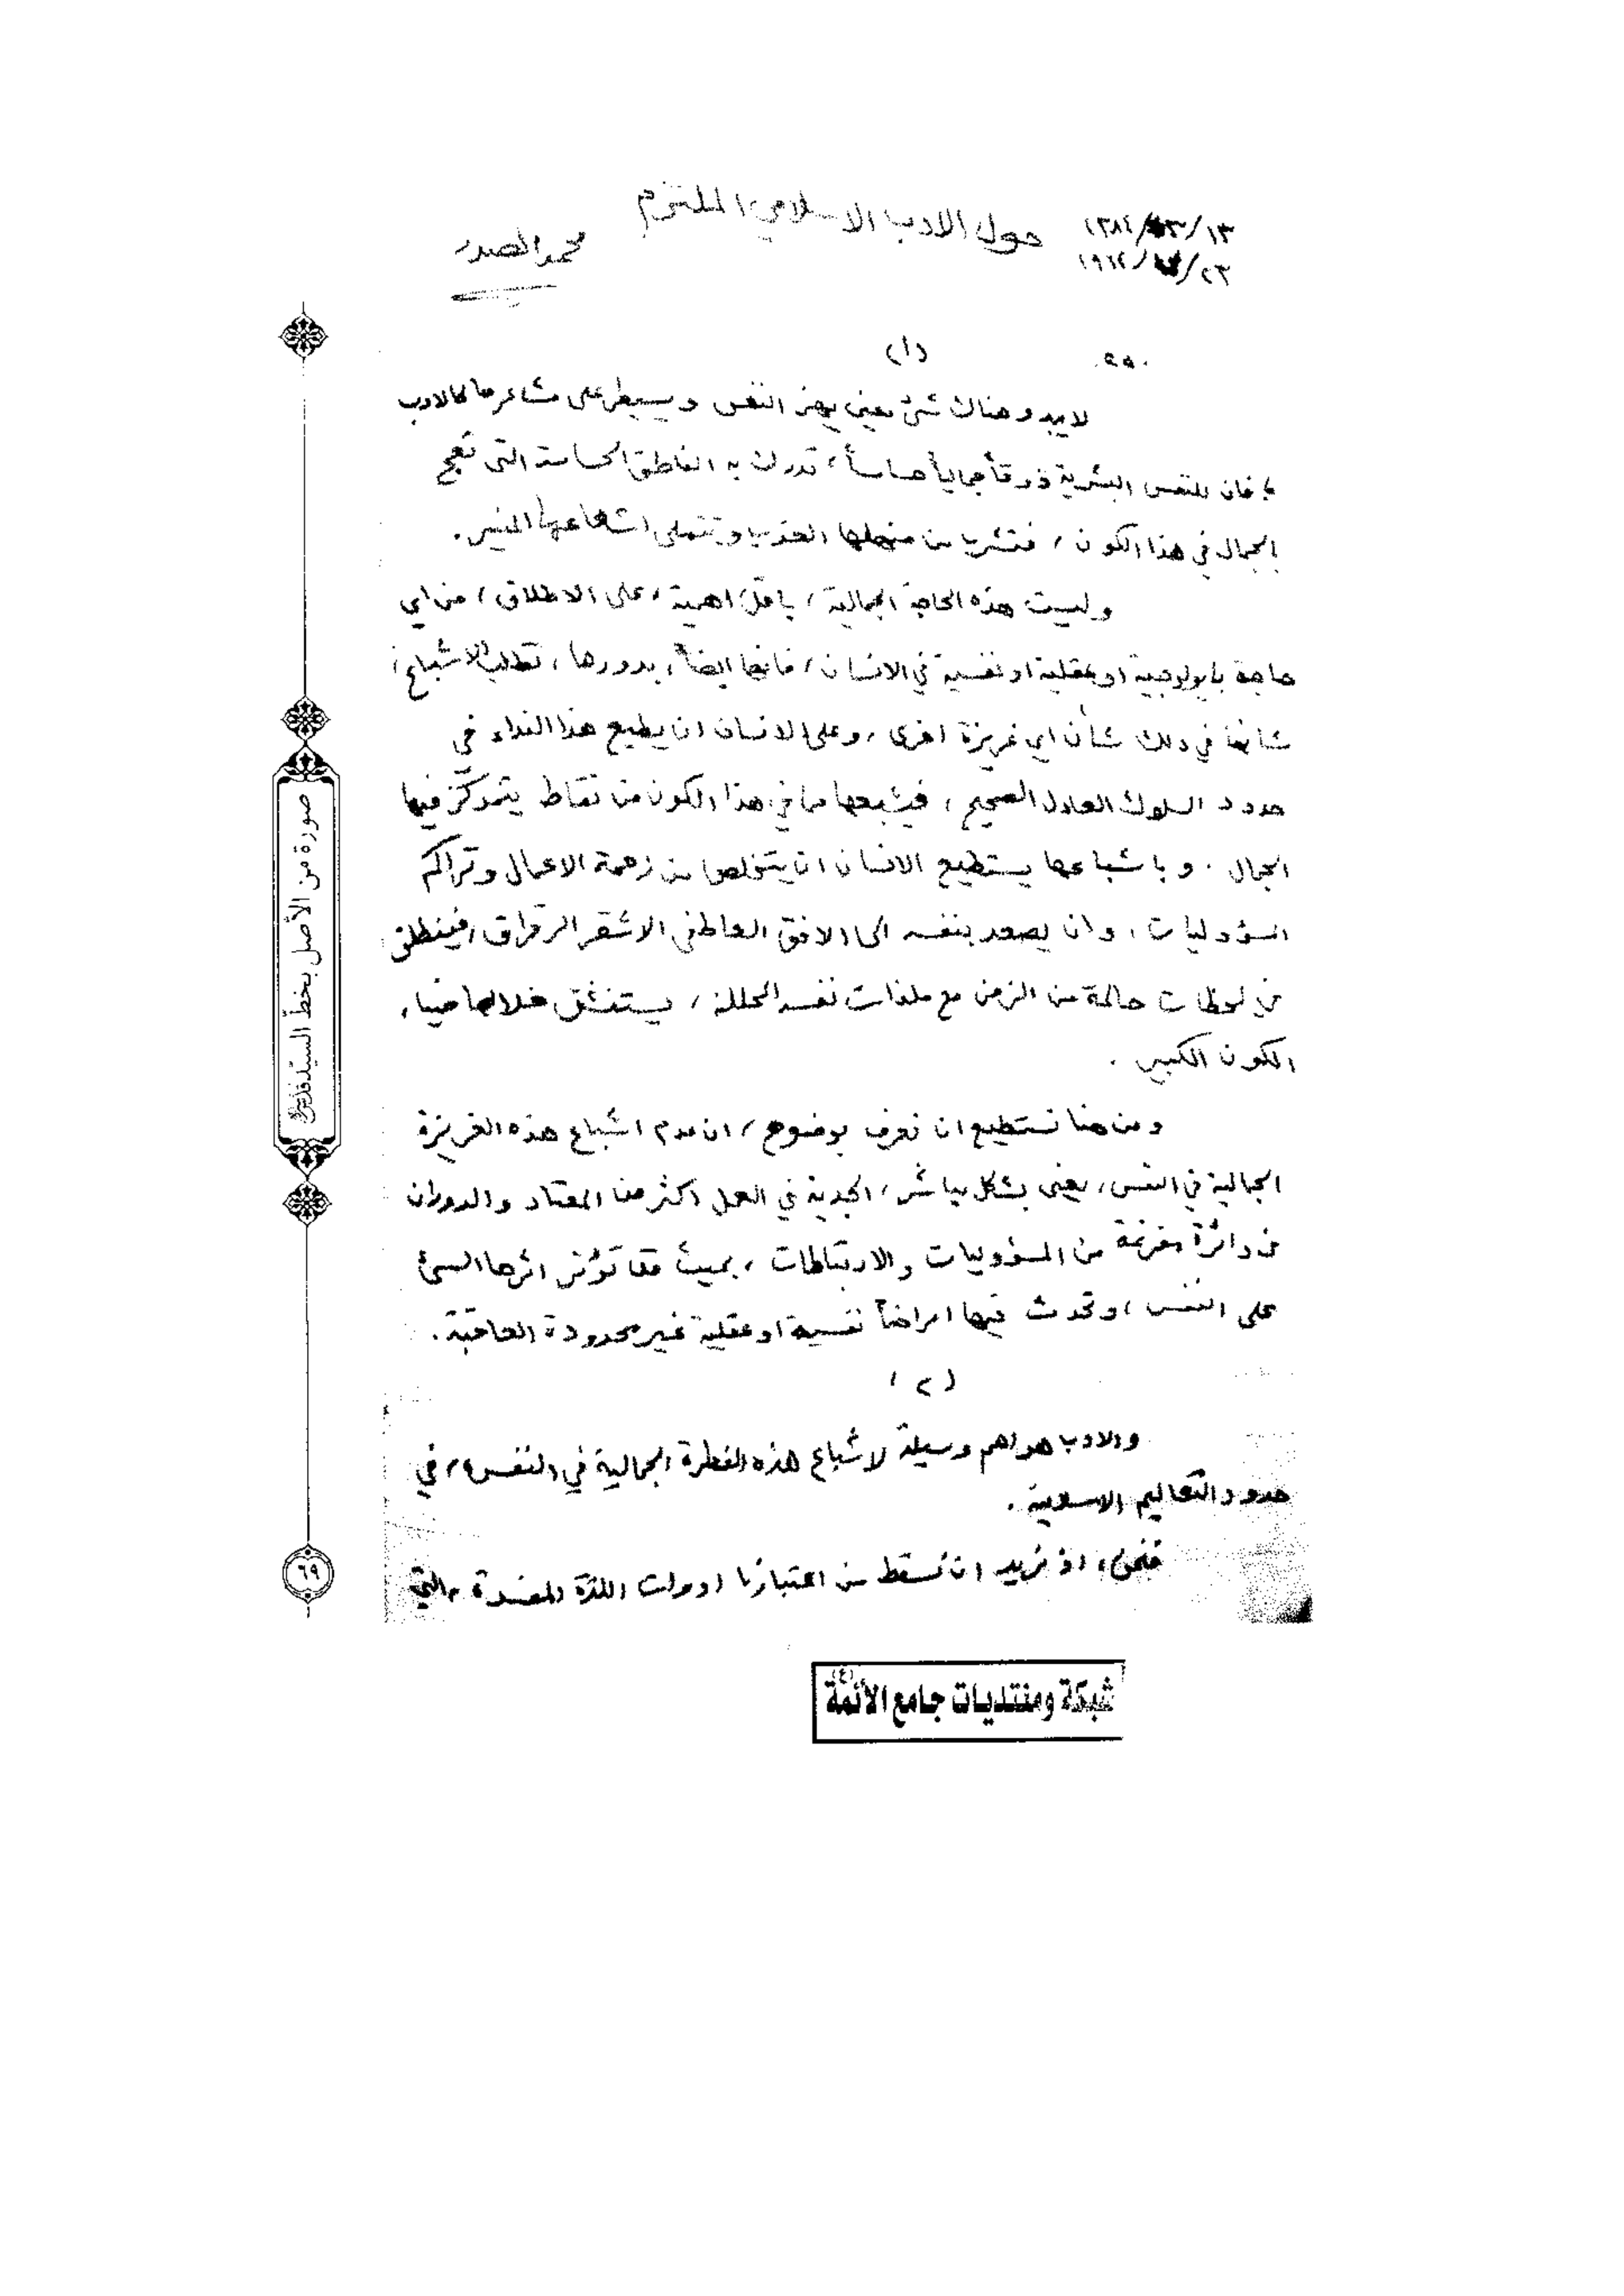 حول الادب الاسلامي الملتزم
١٣/٣/١٣٨٤
محمد الصدر
(١)
لا يبدو هناك شئ يهز النفس ويسيطر على مشاعرها كالادب
، فان للنفس البشرية ذوقاً جمالياً حساساً، تدرك به المناطق الحساسة التي تعج
بالجمال في هذا الكون، فتشرب من منهلها العذب وتتملى اشعاعها المنير.
وليست هذه الحاجة الجمالية، باقل اهمية، على الاطلاق، من اي
حاجة بايولوجية او عقلية او نفسية في الانسان، فانها ايضاً، بدورها، تطلب الاشباع،
شانها في ذلك شأن اي غريزة اخرى، وعلى الانسان ان يطيع هذا النداء في
حدود السلوك العادل الصحيح، فيشبعها مما في هذا الكون من نقاط يتمركز فيها
الجمال. وباشباعها يستطيع الانسان ان يتخلص من زحمة الاعمال وتراكم
المسؤوليات، وان يصعد بنفسه الى الافق العاطفي الاشقر الرقراق، فينطلق
في لحظات حالمة من الزمن مع ملذات نفسه المحللة، يستنشق خلالها ضياء
الكون الكبير.
ومن هنا نستطيع ان نعرف بوضوح، ان عدم اشباع هذه الغريزة
الجمالية في النفس، يعني بشكل مباشر، الجدية في العمل اكثر من المعتاد والدوران
في دائرة مفرغة من المسؤوليات والارتباطات، بحيث قد تؤثر اثرها السئ
على النفس، وتحدث فيها امراضاً نفسية او عقلية غير محدودة العاقبة.
(٢)
والادب هو اهم وسيلة لاشباع هذه الفطرة الجمالية في النفس، في
حدود التعاليم الاسلامية.
فنحن، اذ نريد ان نسقط من اعتبارنا ادوات اللذة المفسدة، التي
صورة من الأصل بخطّ السيّد
٦٩
شبكة ومنتديات جامع الأئمة (ع)